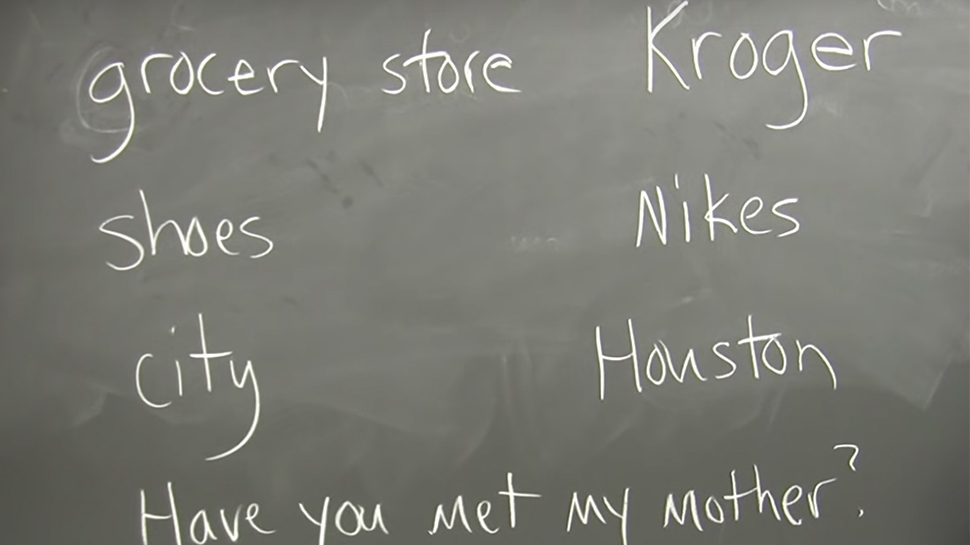 grocery store Kroger
shoes Nikes
city Houston
Have you met my mother?